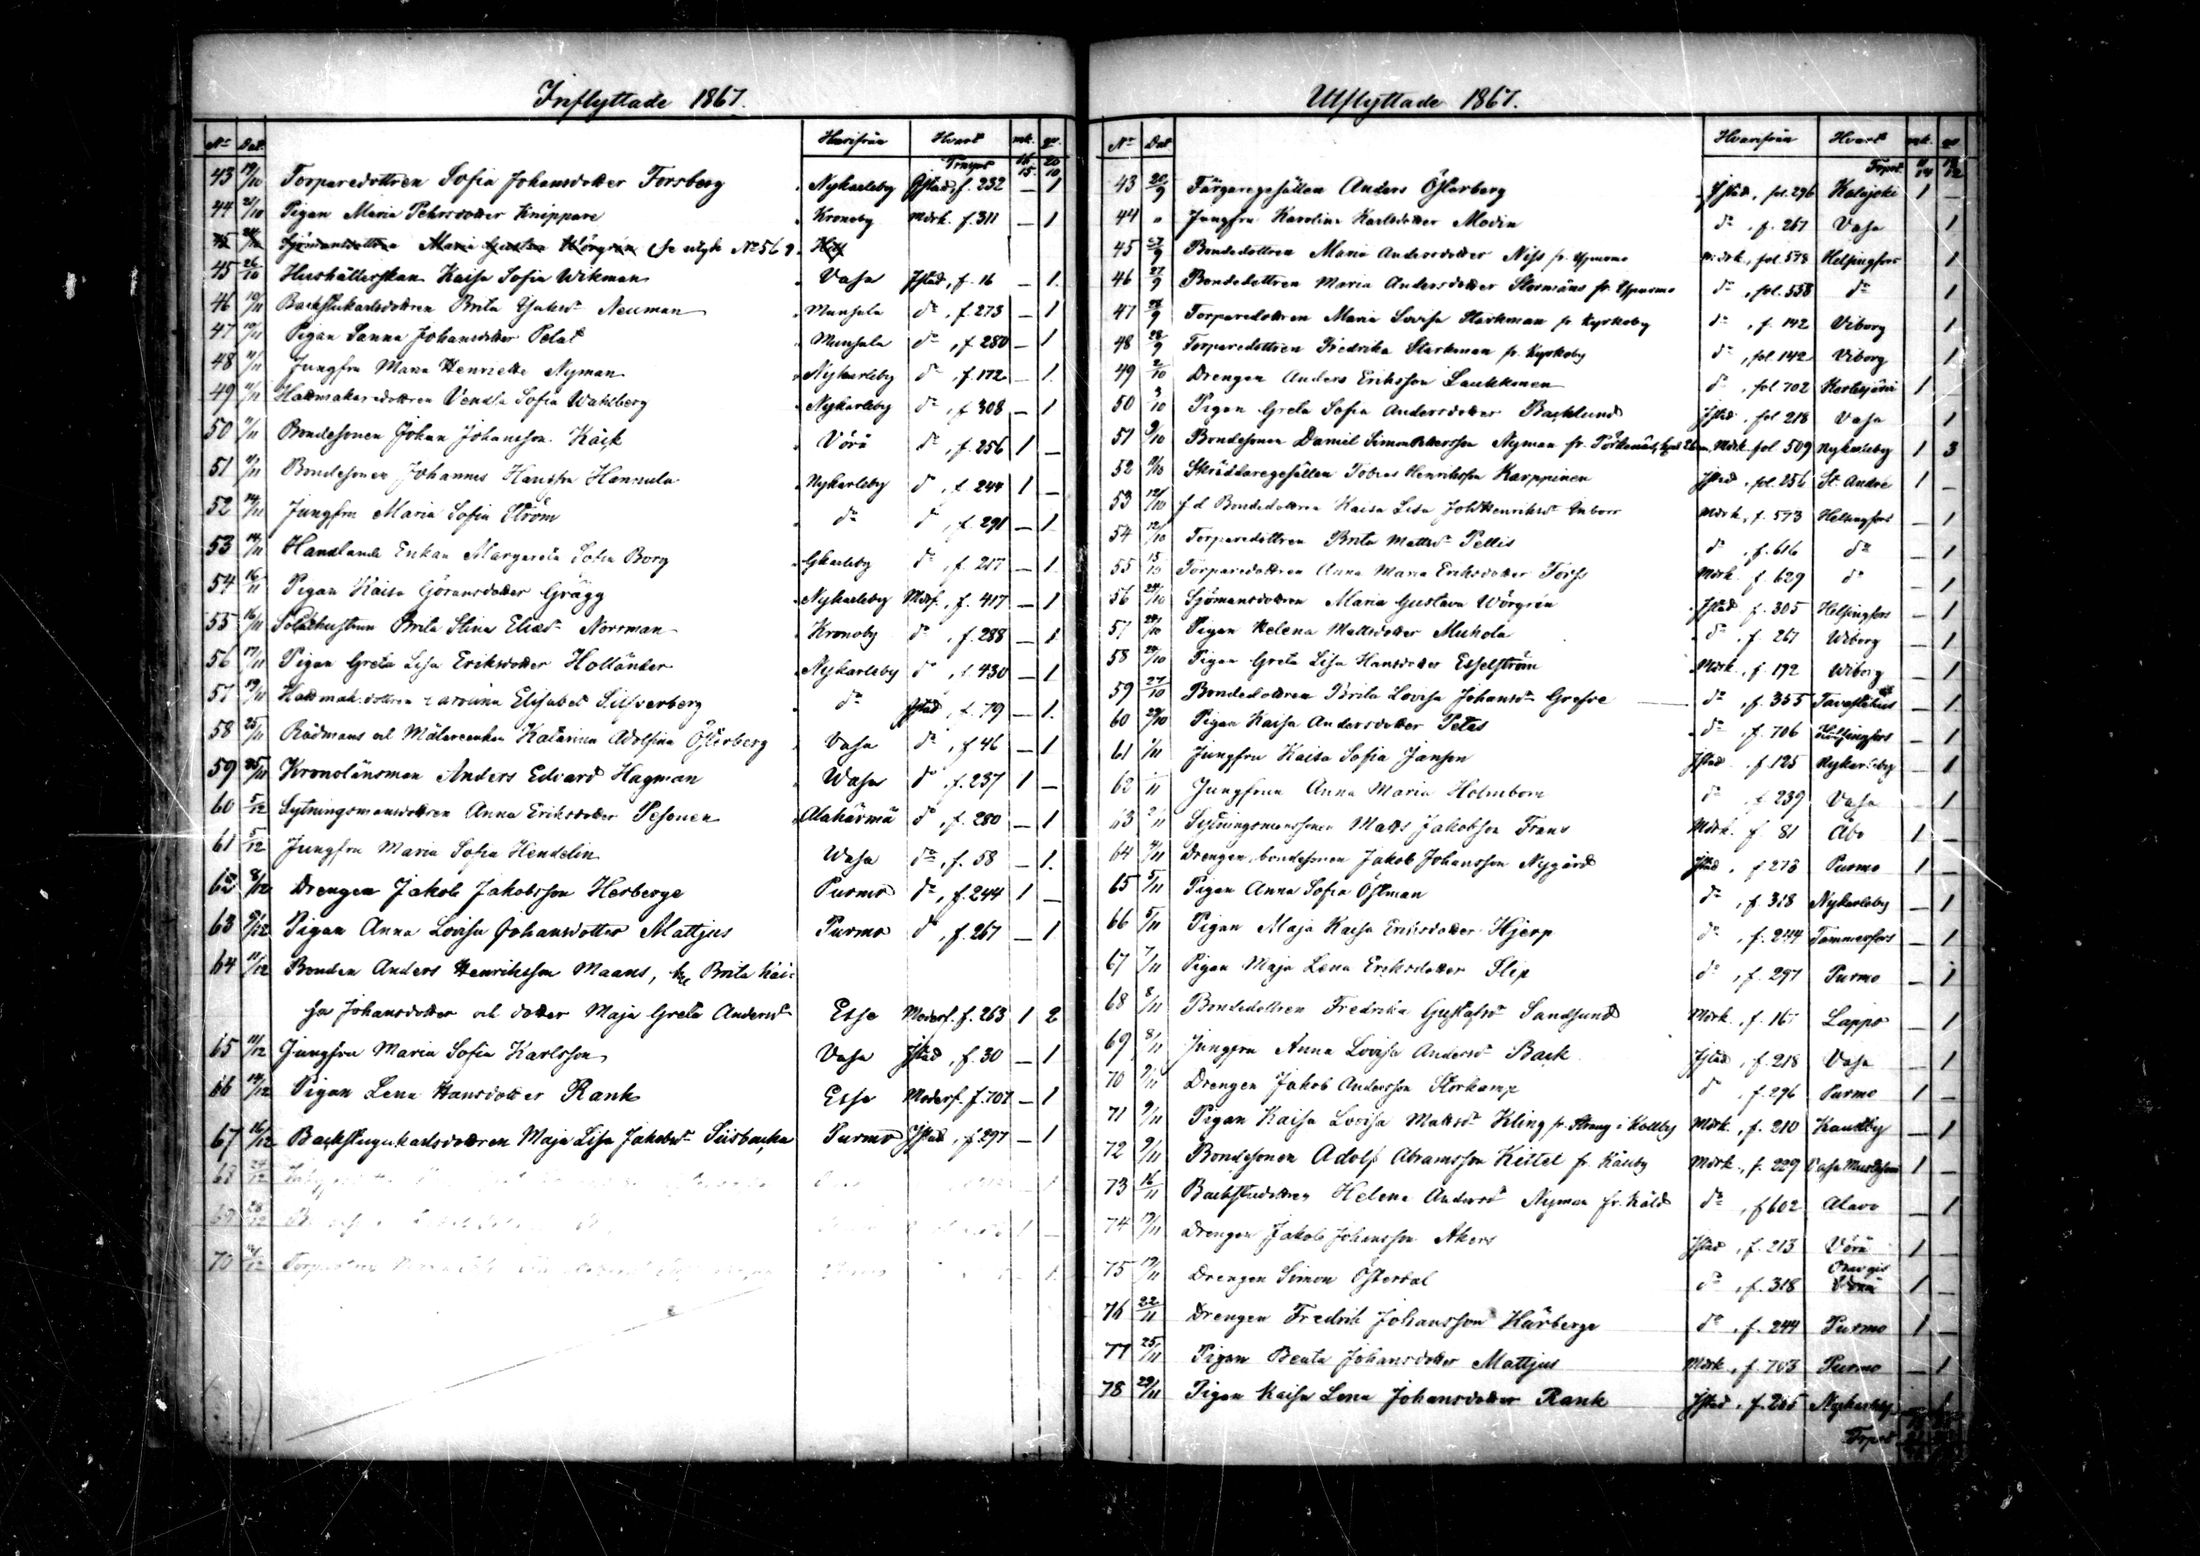 Inflyttade 1867.
No Dat. Hvarifrån Hvart mk. qv.
Transpt 16/15 20/10
43 19/10 Torparedottren Sofia Johansdotter Forsberg Nykarleby Jstad, f. 232 — 1
44 21/10 Pigan Maria Pehrsdotter Knippare Kronoby mdrk. f. 311 — 1
Sjömansdottren Maria Gustava Wörgrén (se utgh No 56
45 26/10 Hushållerskan Kaisa Sofia Wikman Vasa Jstad, f. 16 — 1
46 10/11 Backstukarlsdottren Brita Neuman Munsala do, f. 273 — 1
47 10/11 Pigan Sanna Johansdotter Pelat Munsala do, f. 280 — 1
48 11/11 Jungfru Maria Henriette Nyman Nykarleby do, f. 172 — 1
49 11/11 Hattmakaredottren Vendla Sofia Wahlberg Nykarleby do, f. 308 — 1
50 11/11 Bondesonen Johan Johansson Käck Vörå do, f. 256 1 —
51 11/11 Bondesonen Johannes Hansson Hannula Nykarleby do, f. 244 1 —
52 14/11 Jungfru Maria Sofia Ström do do, f. 291 — 1
53 14/11 Handlande Enkan Margareta Sofia Borg Gkarleby do, f. 217 — 1
54 16/11 Pigan Kaisa Göransdotter Grägg Nykarleby Mdrf., f. 417 — 1
55 16/11 Soldathustrun Brita Stina Eliasdr Norrman Kronoby do, f. 288 — 1
56 17/11 Pigan Greta Lisa Eriksdotter Holländer Nykarleby do, f. 430 — 1
57 19/11 Hattmak. dottren Karolina Elisabet Silfverberg do Jstad, f. 79 — 1
58 25/11 Rådmans och Målareenkan Katarina Adolfina Österberg Vasa do, f. 46 — 1
59 25/11 Kronolänsman Anders Edvard Hagman Wasa do, f. 237 1 —
60 5/12 Sytningsmansdottren Anna Eriksdotter Pesonen Alahärmä do, f. 280 — 1
61 5/12 Jungfru Maria Sofia Hendelin Wasa do, f. 58 — 1
62 8/12 Drengen Jakob Jakobsson Herberge Purmo do, f. 244 1 —
63 9/12 Pigan Anna Lovisa Johansdotter Mattjus Purmo do, f. 267 — 1
64 11/12 Bonden Anders Henriksson Maans, hu Brita Kai-
sa Johansdotter och dotter Maja Greta Andersdr Esse Modersf. f. 263 1 2
65 11/12 Jungfru Maria Sofia Karlsson Vasa Jstad, f. 30 — 1
66 14/12 Pigan Lena Hansdotter Rank Esse Modersf. f. 707 — 1
67 16/12 Backstugukarlsdottren Maja Lisa Jakobsdr Siisbacka Purmo Jstad, f. 297 — 1
68 24/12
69 28/12
70
Utflyttade 1867.
No Dat Hvarifrån Hvart mk. qv.
Trspt
43 20/9 Färgaregesällen Anders Österberg Jstad, fol. 296 Kalajoki 1 —
44 " Jungfru Karolina Karlsdotter Modin do, f. 267 Vasa 1
45 27/9 Bondedottren Maria Andersdotter Niss fr. Ypurmo mdrk., fol. 578 Helsingfors 1
46 27/9 Bondedottren Maria Andersdotter Stormåns fr. Ypurmo do, fol. 558 do 1
47 28/9 Torparedottren Maria Lovisa Starkman fr Kyrkoby do, f. 142 Viborg 1
48 28/9 Torparedottren Fredrika Starkman fr. Kyrkoby do, fol. 142 Viborg 1
49 2/10 Drengen Anders Eriksson Laukkonen do, fol 702 Kortesjärvi 1
50 3/10 Pigan Greta Sofia Andersdotter Backlund Jstad, fol 218 Vasa 1
51 9/10 Bondesonen Daniel Simon Pettersson Nyman fr. Mdrk fol 509 Nykarleby 1 3
52 9/10 Skräddaregesällen Tobias Henriksson Karppinen Jstad, fol. 256 St. André 1 —
53 12/10 f d Bondedottren Kaisa Lisa Joh Henriksdr Enborr Mdrk., f. 573 Helsingfors — 1
54 12/10 Torparedottren Brita Mattsdr Pellis do, f. 616 do — 1
55 15/10 Torparedottren Anna Maria Eriksdotter Forss Mdrk. f. 629 do — 1
56 24/10 Sjömansdottren Maria Gustava Wörgrén Jstad f. 305 Helsingfors — 1
57 24/10 Pigan Helena Mattsdotter Muhola do. f. 267 Wiborg — 1
58 24/10 Pigan Greta Lisa Hansdotter Esselström Mdrk., f. 192 Wiborg — 1
59 27/10 Bondedottren Brita Lovisa Johansdr Grefve do, f. 355 Tavastehus — 1
60 29/10 Pigan Kaisa Andersdotter Petes do, f. 706 Helsingfors — 1
61 1/11 Jungfru Kaisa Sofia Janson Jstad f. 125 Nykarleby — 1
62 Jungfrun Anna Maria Holmbom do, f. 239 Vasa — 1
63 2/11 Sytningsmanssonen Matts Jakobsson Frans Mdrk. f. 81 Åbo 1 —
64 4/11 Drengen, bondesonen Jakob Johansson Nygård Jstad, f. 273 Purmo 1 —
65 5/11 Pigan Anna Sofia Östman do, f. 318 Nykarleby — 1
66 5/11 Pigan Maja Kaisa Eriksdotter Hjerp do, f. 244 Tammerfors — 1
67 7/11 Pigan Maja Lena Eriksdotter Slip do, f. 297 Purmo — 1
68 8/11 Bondedottren Fredrika Gustafsdr Sandsund Mdrk., f. 16 Lappo — 1
69 8/11 Jungfru Anna Lovisa Andersdr Back Jstad, f. 218 Vasa — 1
70 9/11 Drengen Jakob Andersson Storkamp do, f. 296 Purmo 1 —
71 9/11 Pigan Kaisa Lovisa Mattsdr Kling fr. Streng i Kållby Mdrk., f. 210 Kauhby — 1
72 9/11 Bondesonen Adolf Abramsson Kittel fr. Kåuby Mdrk., f. 229 Vasa 1 —
73 16/11 Backstudottren Helena Andersdr Nyman fr. Kåld do, f 602 Alavo — 1
74 19/11 Drengen Jakob Johansson Akers Jstad, f. 213 Vörå 1 —
75 19/11 Drengen Simon Österdal do, f. 318 Oravais 1 —
76 22/11 Drengen Fredrik Johansson Härberge do, f. 244 Purmo 1 —
77 25/11 Pigan Beata Johansdotter Mattjus Mdrk., f. 703 Purmo — 1
78 29/11 Pigan Kaisa Lena Johansdotter Rank Jstad, f. 265 Nykarleby — 1
Trspt